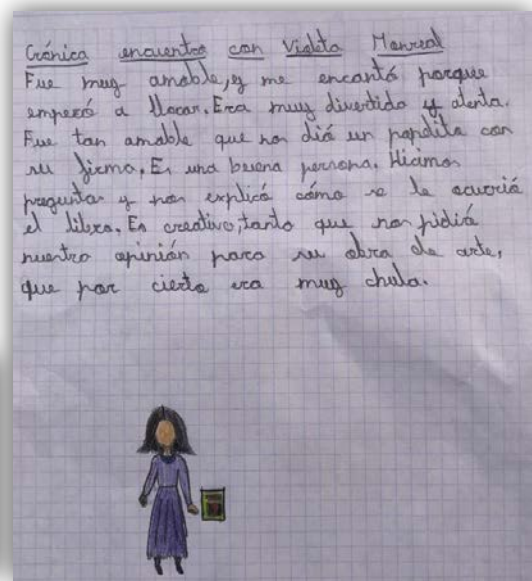 Crónica encuentro con Violeta Monreal
Fue muy amable, y me encantó porque
empezó a llorar. Era muy divertida y atenta.
Fue tan amable que nos dió un papelito con
su firma. Es una buena persona. Hicimos
preguntas y nos explicó cómo se le ocurrió
el libro. Es creativa, tanto que nos pidió
nuestra opinión para su obra de arte,
que por cierto era muy chula.